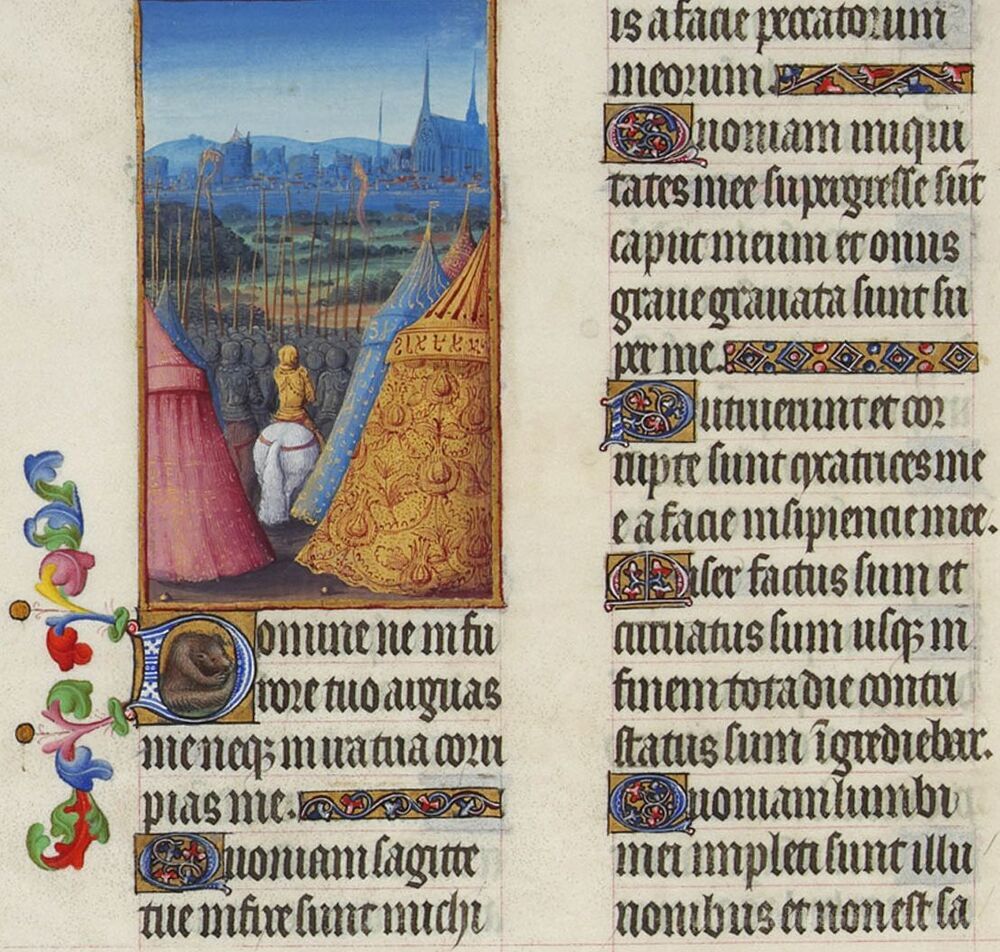 Domine ne in fu
rore tuo arguas
me neq in ira tua corri
pias me.
Quoniam sagitte
tue infixe sunt michi
is a facie peccatorum
meorum.
Quoniam iniqui
tates mee supergresse sūt
caput meum et onus
graue grauata sunt su
per me.
Putruerunt et cor
rupte sunt cycatrices me
e a facie insipiencie mee.
Miser factus sum et
curuatus sum usq in
finem tota die contri
status sum īgrediebar.
Quoniam lumbi
mei impleti sunt illu
nonibus et non est sa